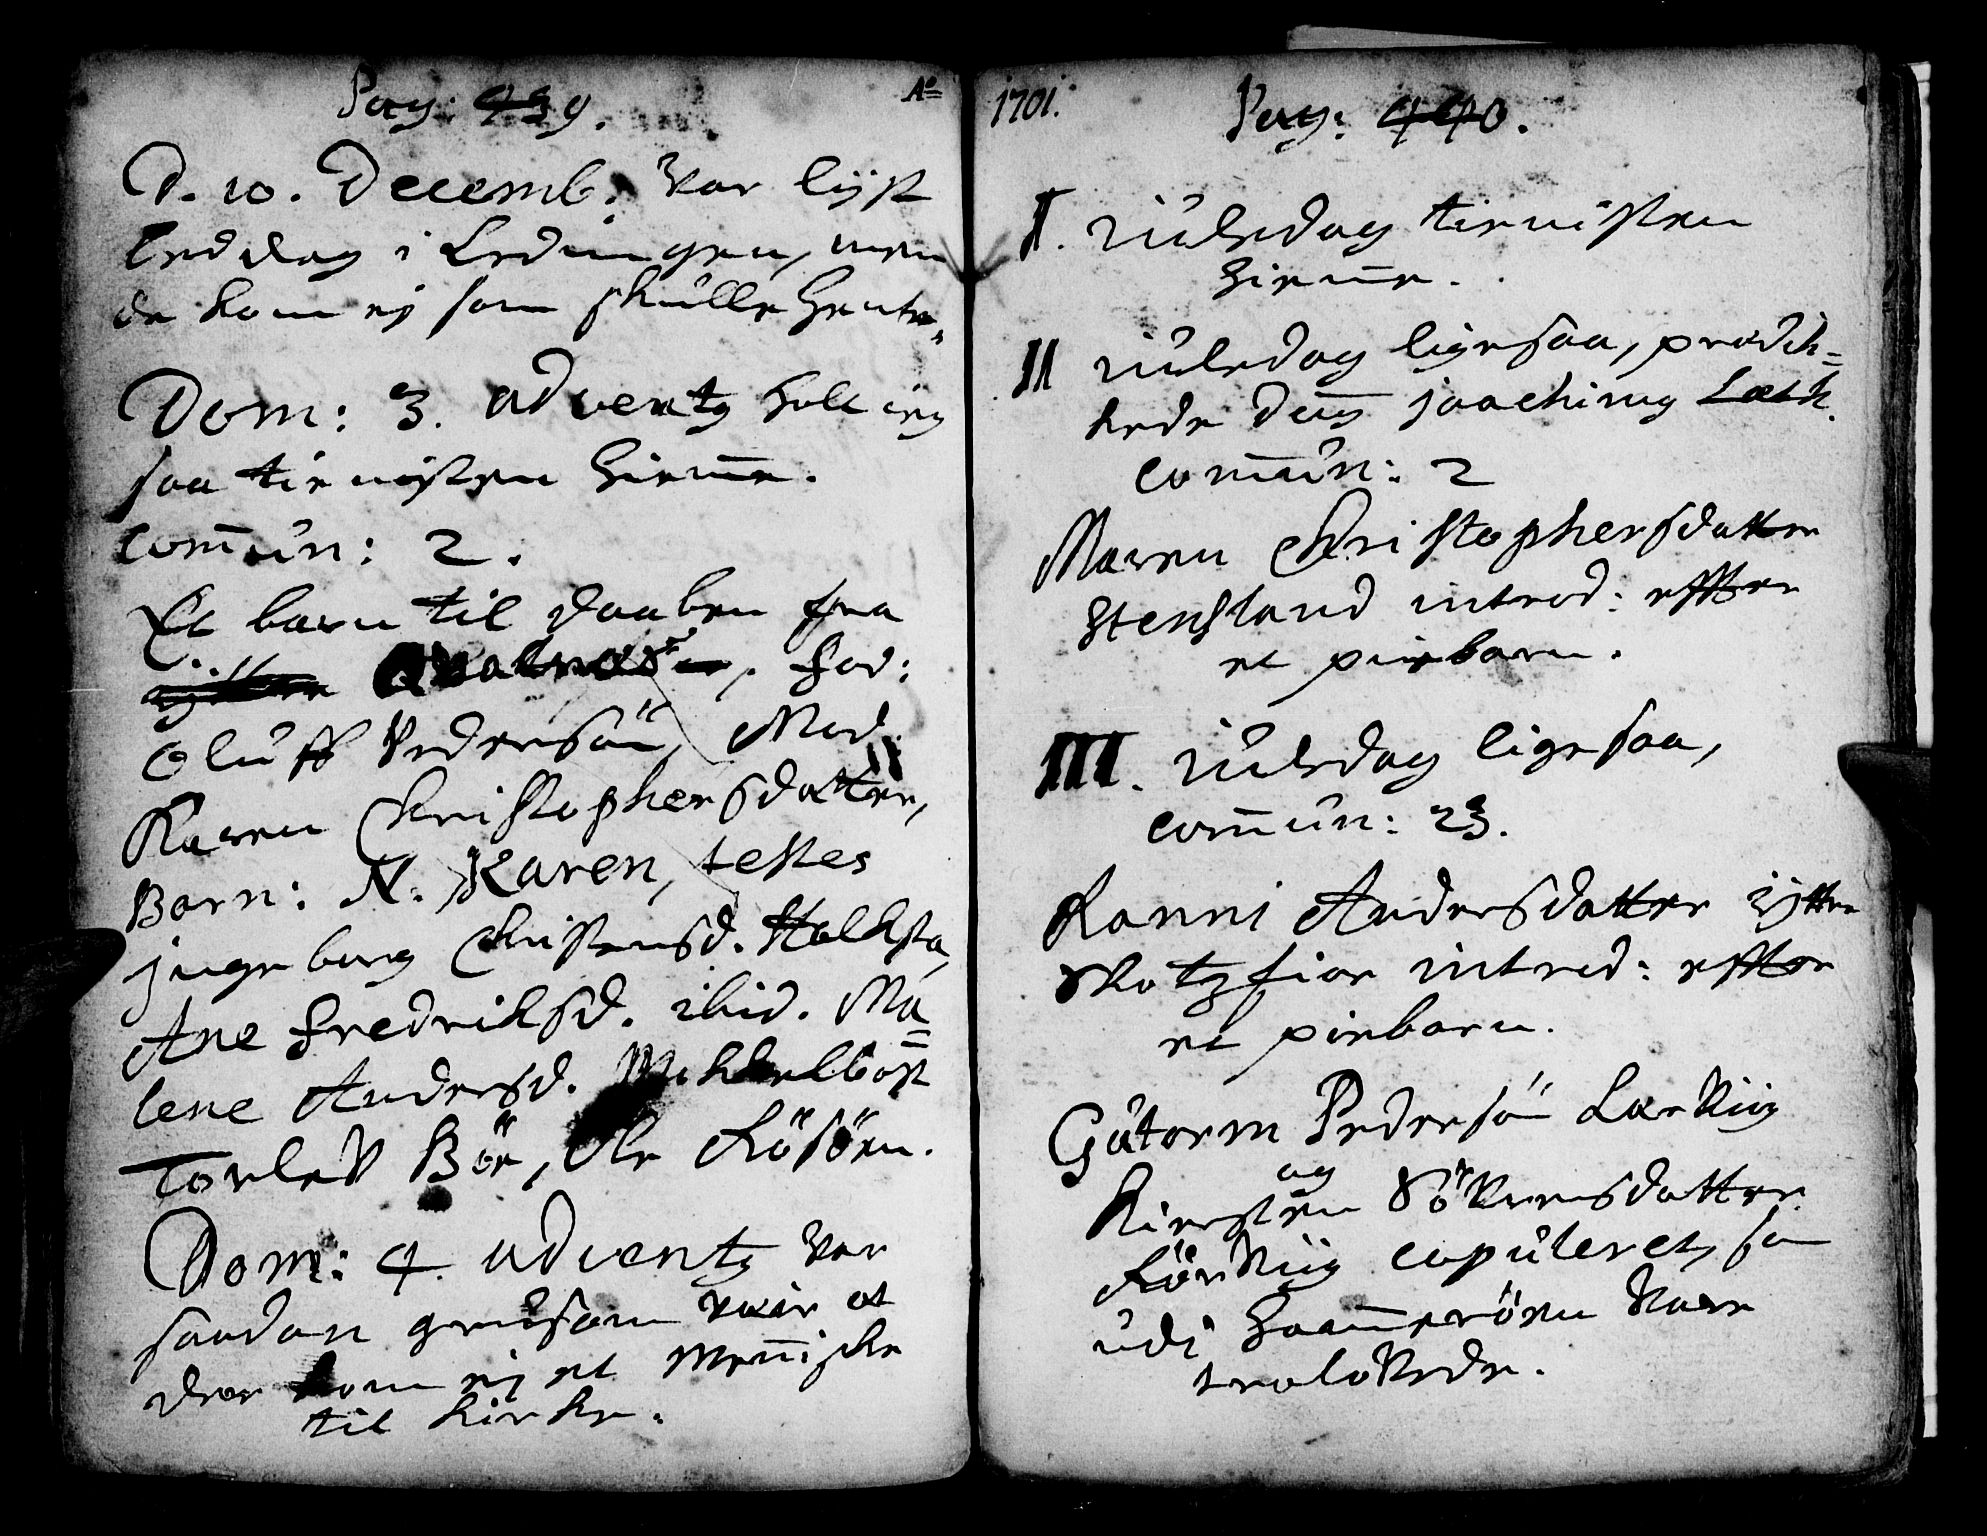 Pag: 439.
Aº
D. 10. Decemb: var lÿst
beddag i Ledingen, men
de kom ej som skulle hente
Dom: 3. adventz holt ieg
saa tienisten hieme.
Comun: 2.
Et barn til daaben fra
Fad:
Oluff Pedersön, Mod.
Karen Christophersdatter,
Barn: N. Karen, testes
jngeborg Christensd.
Ane Fredriksd. ibid. Ma=
lene Andersd.
Torlef Böe, Ole Rösöen.
Dom: 4. adventz var
saadan grusom veir at
der kom ej et Menniske
til kirke.
1701.
Pag: 440.
I. iuledag tienisten
hieme.
II iuledag ligesaa, predik=
kede dens joachims
Comun: 2
Maren Christophersdatter
Stensland introd: effter
et pigebarn.
III. iuledag ligesaa,
Comun: 23.
Kanni Andersdatter ÿtter
Skotzfior introd: effter
et pigebarn.
Gutorm Pedersön
og
Kiersten Söfrensdatter
copuleret, som
udi Hammeröen vare
trolovede.